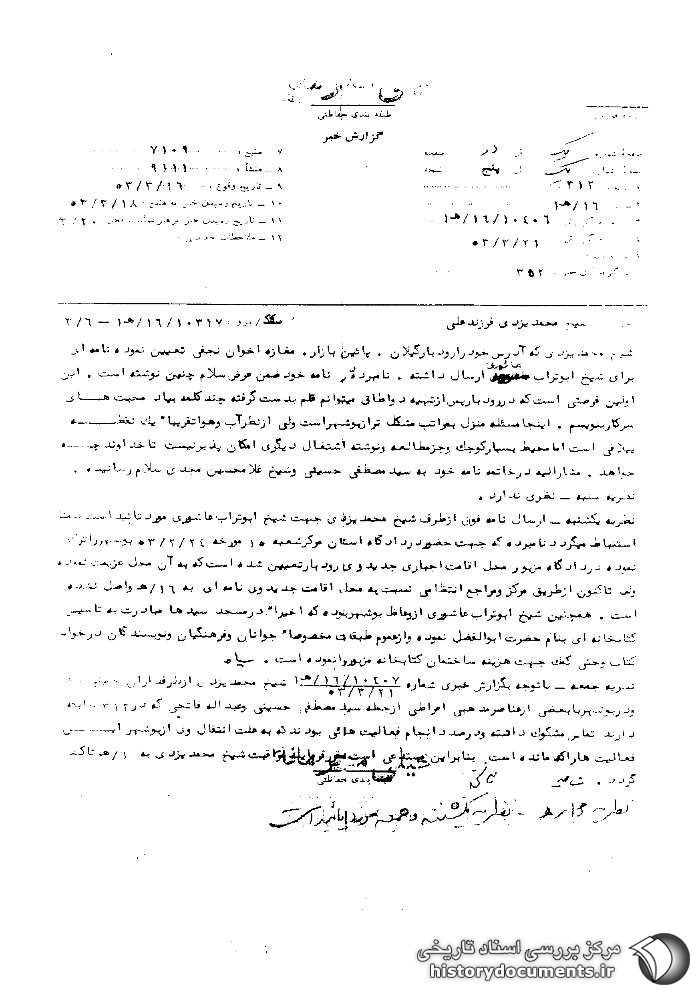 طبقه بندی حفاظتی
گزارش خبر
۷ – منبع : ۷۱۰۹
۸ – منشأ : ۹۱۱۱
۹ – تاریخ وقوع : ۵۳/۳/۱۶
۱۰ – تاریخ رسیدن خبر به منبع : ۵۳/۳/۱۸
۱۱ – تاریخ رسیدن خبر
۱۲ – ملاحظات
یک از دو صفحه
یک از پنج نسخه
۳۱۲
۱۶/ه‍ ۱
۱۰۴۰۶/۱۶/ه‍ ۱
۵۳/۳/۲۱
۳۵۲
شیخ محمد یزدی فرزند علی
۱۰۳۱۷/۱۶/ه‍ ۱ – ۲/۶
شیخ محمد یزدی که آدرس خود را رودبار گیلان . پائین بازار. مغازه اخوان نجفی تعیین نموده نامه ای
برای شیخ ابوتراب عاشوری ارسال داشته . نامبرده در نامه خود ضمن عرض سلام چنین نوشته است . این
اولین فرصتی است که در رودبار پس از تهیه دو اطاقی میتوانم قلم بدست گرفته چند کلمه بیاد محبت های
سرکار بنویسم . اینجا مسئله منزل بمراتب مشکل تر از بوشهر است ولی از نظر آب و هوا تقریبا" یک نقطه
ییلاقی است اما محیط بسیار کوچک و جز مطالعه و نوشته اشتغال دیگری امکان پذیر نیست تا خداوند چه
خواهد . مشارالیه در خاتمه نامه خود به سید مصطفی حسینی و شیخ غلامحسین مجدی سلام رسانیده .
نظریه شنبه – نظری ندارد .
نظریه یکشنبه – ارسال نامه فوق از طرف شیخ محمد یزدی جهت شیخ ابوتراب عاشوری مورد تائید است
استنباط میگردد نامبرده که جهت حضور در دادگاه استان مرکز شعبه ۱۵ مورخه ۵۳/۲/۲۴ بوشهر را ترک
نموده در دادگاه مزبور محل اقامت اجباری جدید وی رودبار تعیین شده است که به آن محل عزیمت نموده
ولی تاکنون از طریق مرکز و مراجع انتظامی نسبت به محل اقامت جدید وی نامه ای به ۱۶/ه‍ واصل نشده
است . همچنین شیخ ابوتراب عاشوری از وعاظ بوشهر بوده که اخیرا" در مسجد سیدها مبادرت به تاسیس
کتابخانه ای بنام حضرت ابوالفضل نموده و از عموم طبقات مخصوصا" جوانان و فرهنگیان و نویسندگان درخواست
کتاب و حتی کمک جهت هزینه ساختمان کتابخانه مزبور را نموده است .
نظریه جمعه – با توجه بگزارش خبری شماره ۱۰۲۰۷/۱۶/ه‍ ۱ شیخ محمد یزدی از طرفداران خمینی
۵۳/۳/۲۱
و در بوشهر با بعضی از عناصر مذهبی افراطی از جمله سید مصطفی حسینی و عبداله فاتحی که در ۳۱۲ سابقه
دارند تماس مشکوک داشته و در صدد انجام فعالیت هائی بودند که به علت انتقال وی از بوشهر این
فعالیت ها راکد مانده است . بنابراین مستدعی است مقرر فرمایند مراقبت شیخ محمد یزدی به ۱/ه‍ تاکید
گردد .
طبقه بندی حفاظتی
نظریه یکشنبه و جمعه مورد تائید است
مرکز بررسی اسناد تاریخی
historydocuments.ir